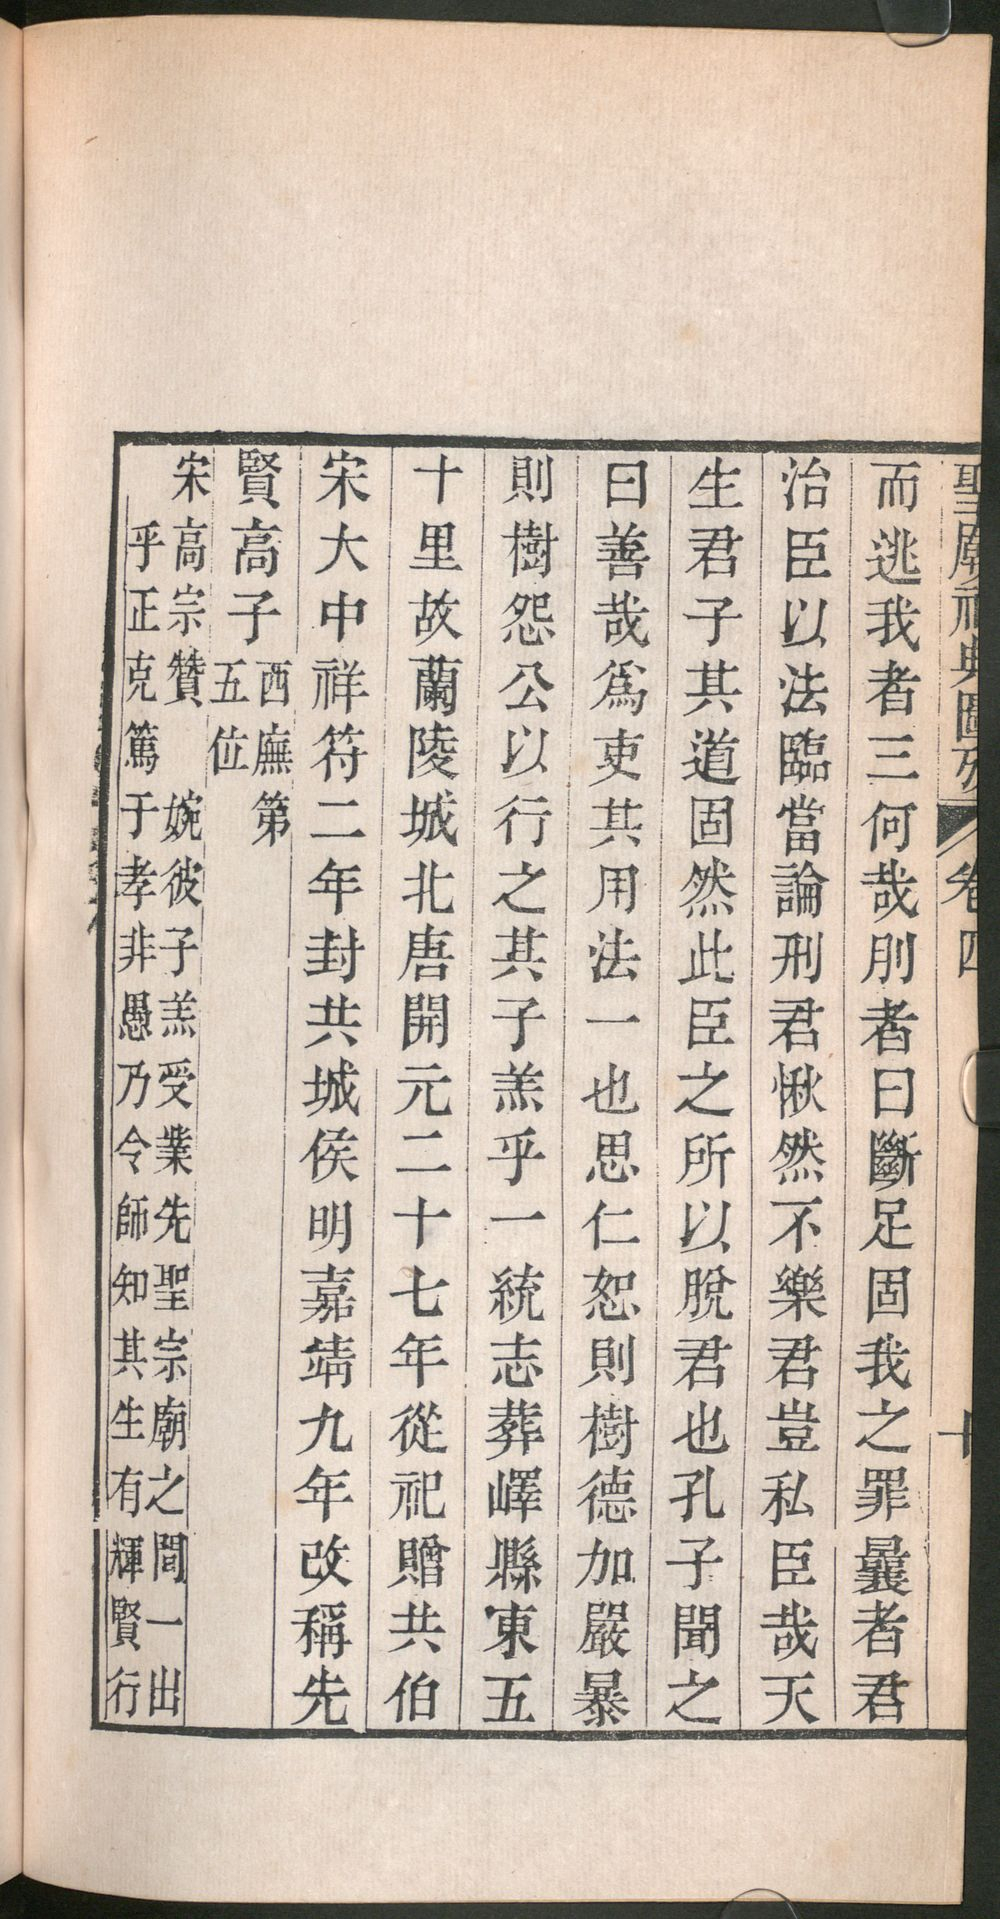 聖廟祀典圖攷 卷四 十
而逃我者三何哉刖者曰斷足固我之罪曩者君
治臣以法臨當論刑君愀然不樂君豈私臣哉天
生君子其道固然此臣之所以脫君也孔子聞之
曰善哉爲吏其用法一也思仁恕則樹德加嚴暴
則樹怨公以行之其子羔乎一統志葬嶧縣東五
十里故蘭陵城北唐開元二十七年從祀贈共伯
宋大中祥符二年封共城侯明嘉靖九年改稱先
賢高子
西廡第
五位
宋高宗贊 婉彼子羔受業先聖宗廟之間一出
乎正克篤于孝非愚乃令師知其生有輝賢行